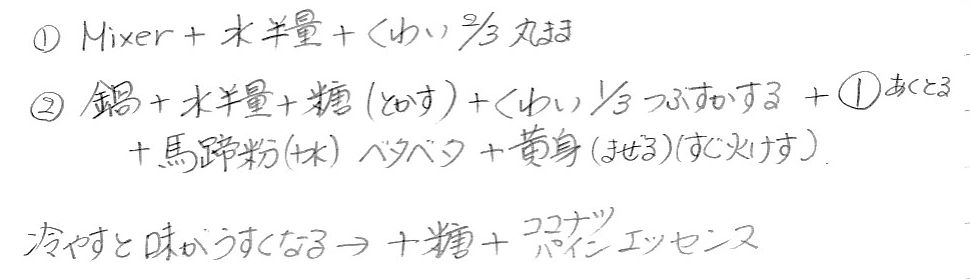 ① Mixer + 水半量 + くわい 2/3 丸まま
② 鍋 + 水半量 + 糖 (とかす) + くわい 1/3 つぶすかする + ① あくとる
+ 馬蹄粉 (+水) ベタベタ + 黄身 (まぜる) (すぐ火けす)
冷やすと味がうすくなる → + 糖 + ココナツ パイン エッセンス